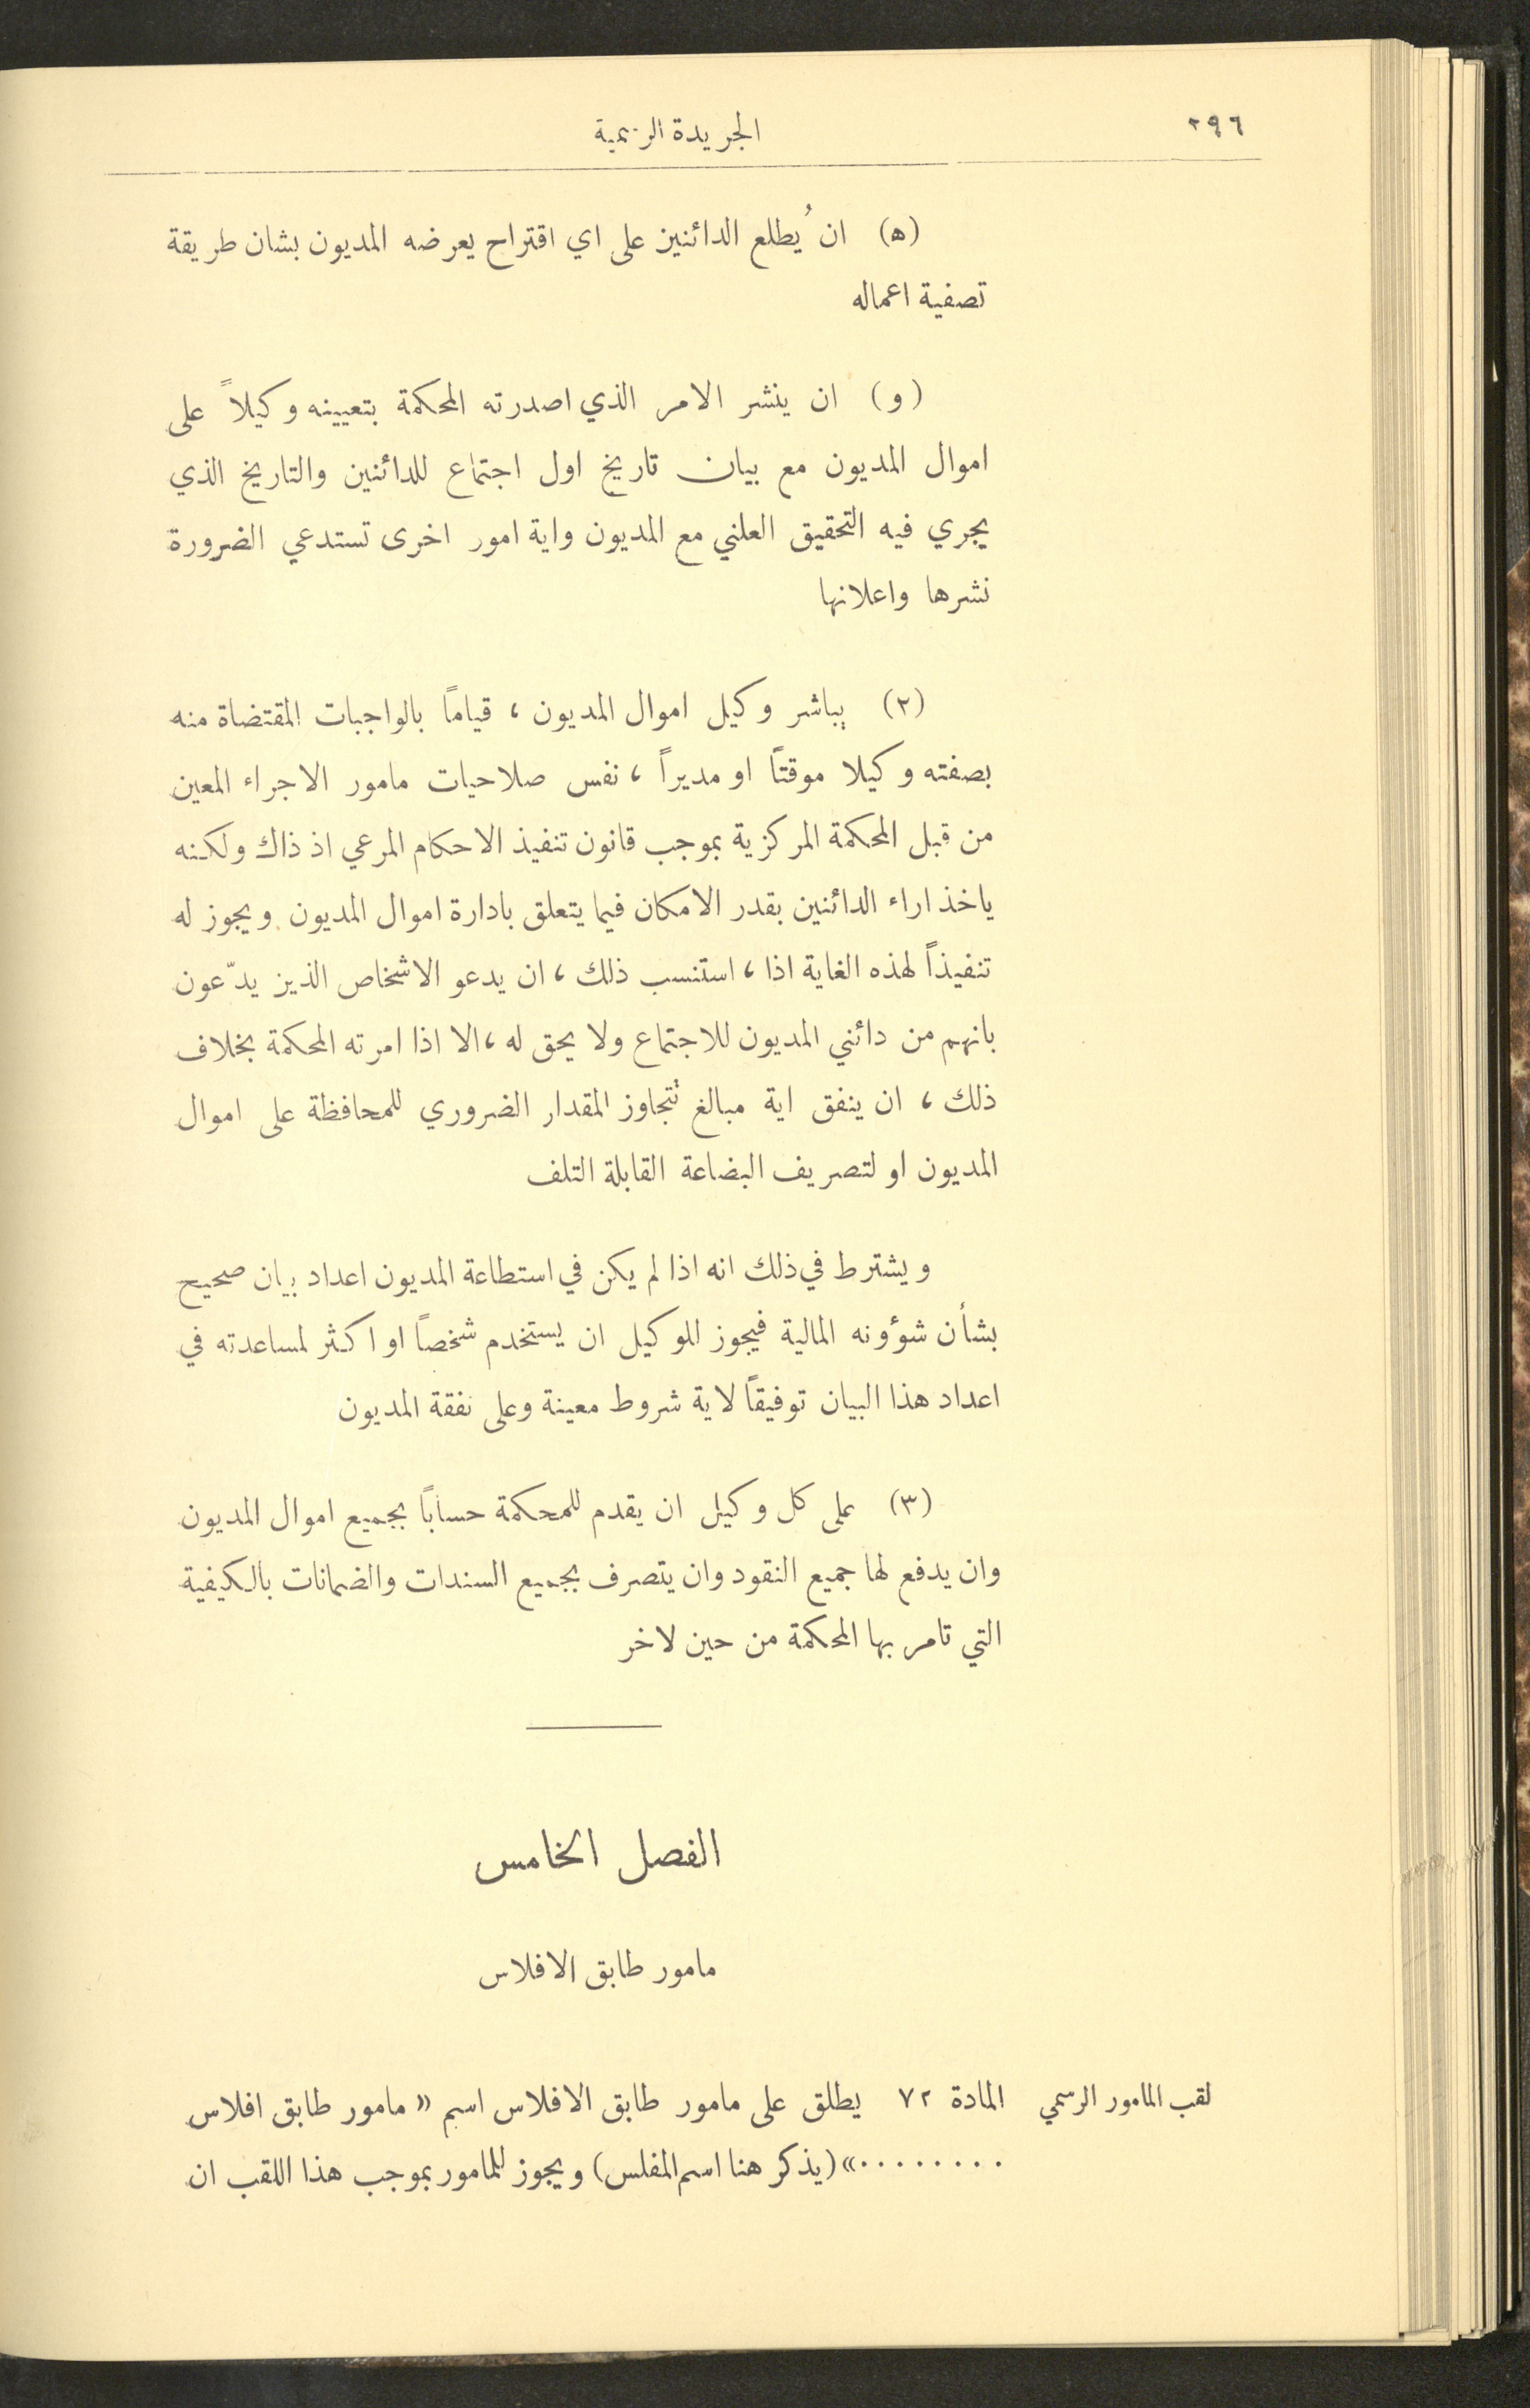 ٢٩٦
الجريدة الرسمية
(ه) ان ُيطلع الدائنين على اي اقتراح يعرضه المديون بشان طريقة
تصفية اعماله
(و) ان ينشر الامر الذي اصدرته المحكمة بتعيينه وكيلاً على
اموال المديون مع بيان تاريخ اول اجتماع للدائنين والتاريخ الذي
يجري فيه التحقيق العلني مع المديون واية امور اخرى تستدعي الضرورة
نشرها واعلانها
(٢) يباشر وكيل اموال المديون ، قياماً بالواجبات المقتضاة منه
بصفته وكيلا موقتاً او مديراً ، نفس صلاحيات مامور الاجراء المعين
من قبل المحكمة المركزية بموجب قانون تنفيذ الاحكام المرعي اذ ذاك ولكنه
ياخذ اراء الدائنين بقدر الامكان فيما يتعلق بادارة اموال المديون ويجوز له
تنفيذاً لهذه الغاية اذا ، استنسب ذلك ، ان يدعو الاشخاص الذين يدّعون
بانهم من دائني المديون للاجتماع ولا يحق له ، الا اذا امرته المحكمة بخلاف
ذلك ، ان ينفق اية مبالغ تتجاوز المقدار الضروري للمحافظة على اموال
المديون او لتصريف البضاعة القابلة التلف
ويشترط في ذلك انه اذا لم يكن في استطاعة المديون اعداد بيان صحيح
بشأن شؤونه المالية فيجوز للوكيل ان يستخدم شخصاً او اكثر لمساعدته في
اعداد هذا البيان توفيقاً لاية شروط معينة وعلى نفقة المديون
(٣) على كل وكيل ان يقدم للمحكمة حساباً بجميع اموال المديون
وان يدفع لها جميع النقود وان يتصرف بجميع السندات والضمانات بالكيفية
التي تامر بها المحكمة من حين لاخر
الفصل الخامس
مامور طابق الافلاس
لقب المامور الرسمي
المادة ٧٢ يطلق على مامور طابق الافلاس اسم « مامور طابق افلاس
. . . . . . . . » (يذكر هنا اسم المفلس) ويجوز للمامور بموجب هذا اللقب ان